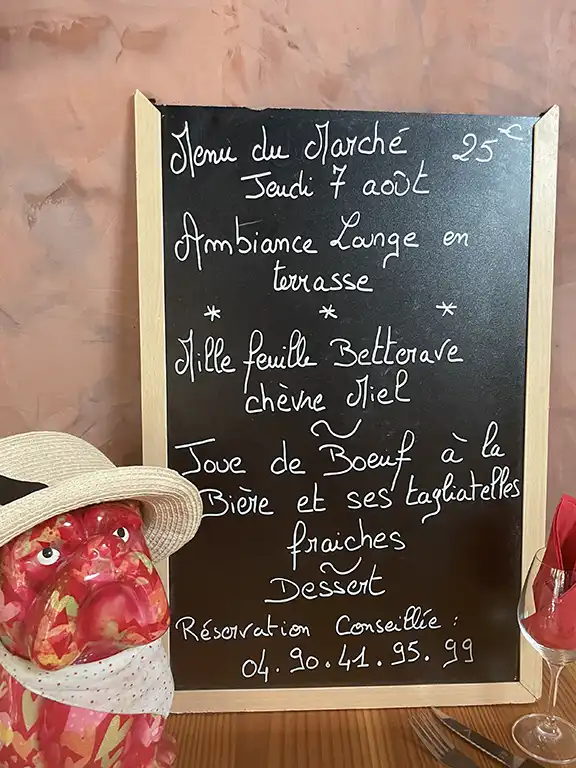 Menu du Marché 25€
Jeudi 7 août
Ambiance Lounge en
terrasse
* * *
Mille feuille Betterave
chèvre Miel
~
Joue de Boeuf à la
Bière et ses tagliatelles
fraiches
~
Dessert
Réservation Conseillée :
04.90.41.95.99